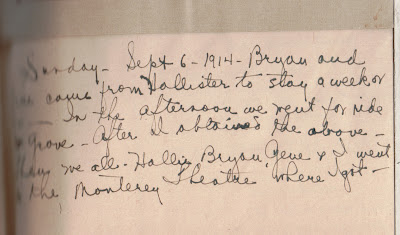 Sunday - Sept 6 - 1914 - Bryan and
came from Hollister to stay a week or
- In the afternoon we went for ride
Grove - After I obtained the above -
we all - Hallie, Bryan, Gene & I went
the Monterey Theatre where I got -